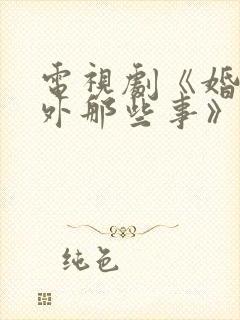 電視劇《婚
外那些事》
纯色